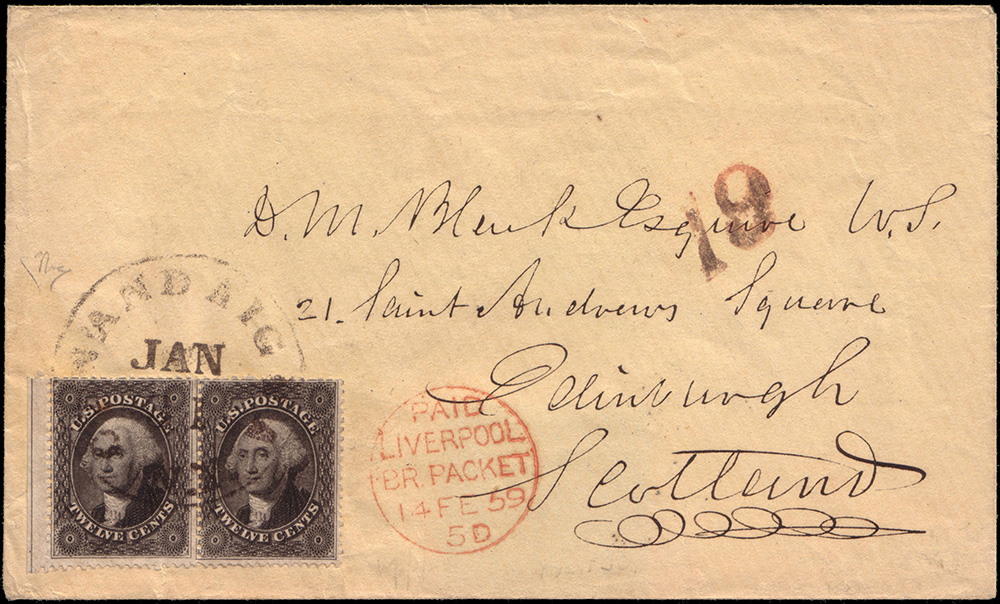 19
D. M. Black Esquire W.S.
21. Saint Andrews Square
Edinburgh
Scotland
ANDAIG
JAN
U.S. POSTAGE
TWELVE CENTS
U.S. POSTAGE
TWELVE CENTS
PAID
LIVERPOOL
BR. PACKET
14 FE 59
5 D